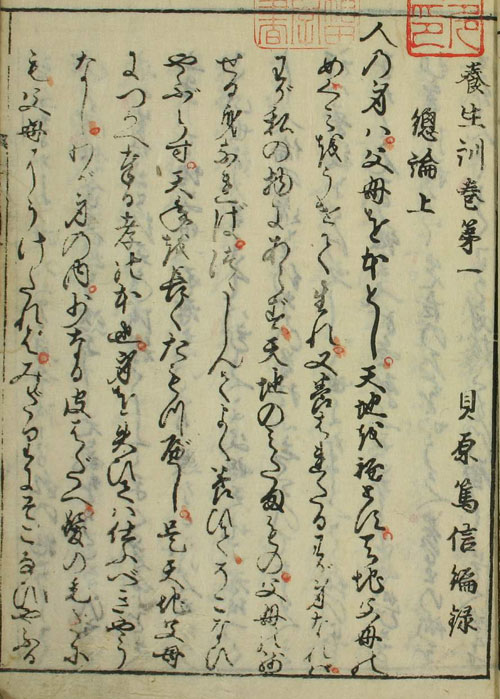 養生訓巻第一　貝原篤信編録
總論上
人の身ハ父母を本とし天地を初とす天地父母の
めぐみをうけて生れ又養はれたるわが身なれば
わが私の物にあらず天地のみたまもの父母の残
せる身なればつゝしんでよく養ひてそこなひ
やぶらず天年を長くたもつべし是天地父母
につかへ奉る孝の本也身を失ひてハ仕ふべきやう
なしわが身の内少なる皮はだへ髪の毛だに
も父母にうけたればみだりにそこなひやぶる